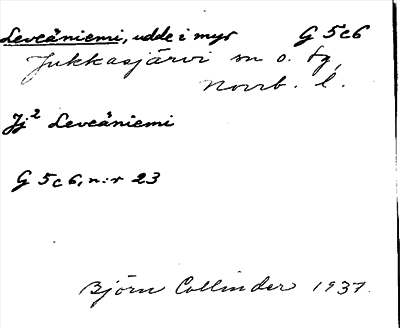 Leveäniemi, udde i myr G 5c6
Jukkasjärvi sn o. tg,
Norrb. l.
Jj² Leveäniemi
G 5c6, n:r 23
Björn Collinder 1937.